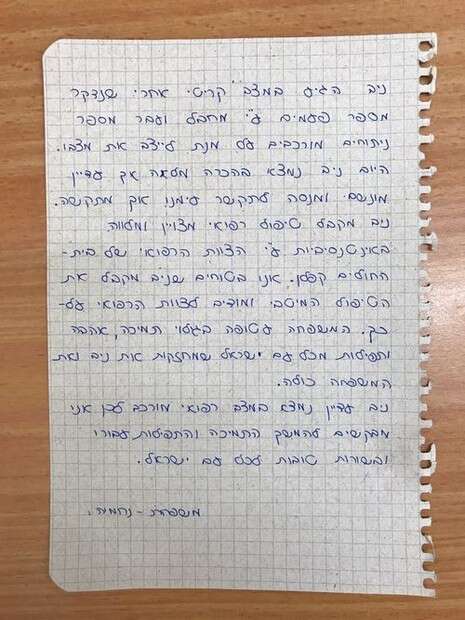 ניב הגיע במצב "קריטי" אחרי שנדקר
מספר פעמים ע"י מחבל ועבר מספר
ניתוחים מורכבים על מנת לייצב את מצבו.
היום ניב נמצא בהכרה מלאה אך עדיין
מונשם ומנסה לתקשר עימנו אך מתקשה.
ניב מקבל טיפול רפואי מצוין ומלווה
באינטנסיביות ע"י הצוות הרפואי של בית-
החולים קפלן. אנו בטוחים שניב מקבל את
הטיפול המיטבי ומודים לצוות הרפואי על-
כך. המשפחה עטופה בגלוי תמיכה, אהבה
ותפילות מכל עם ישראל שמחזקות את ניב ואת
המשפחה כולה.
ניב עדיין נמצא במצב רפואי מורכב לכן אני
מבקשים להמשך התמיכה והתפילות עבורו
ובשורות טובות לכל עם ישראל.
משפחת - נחמיה.